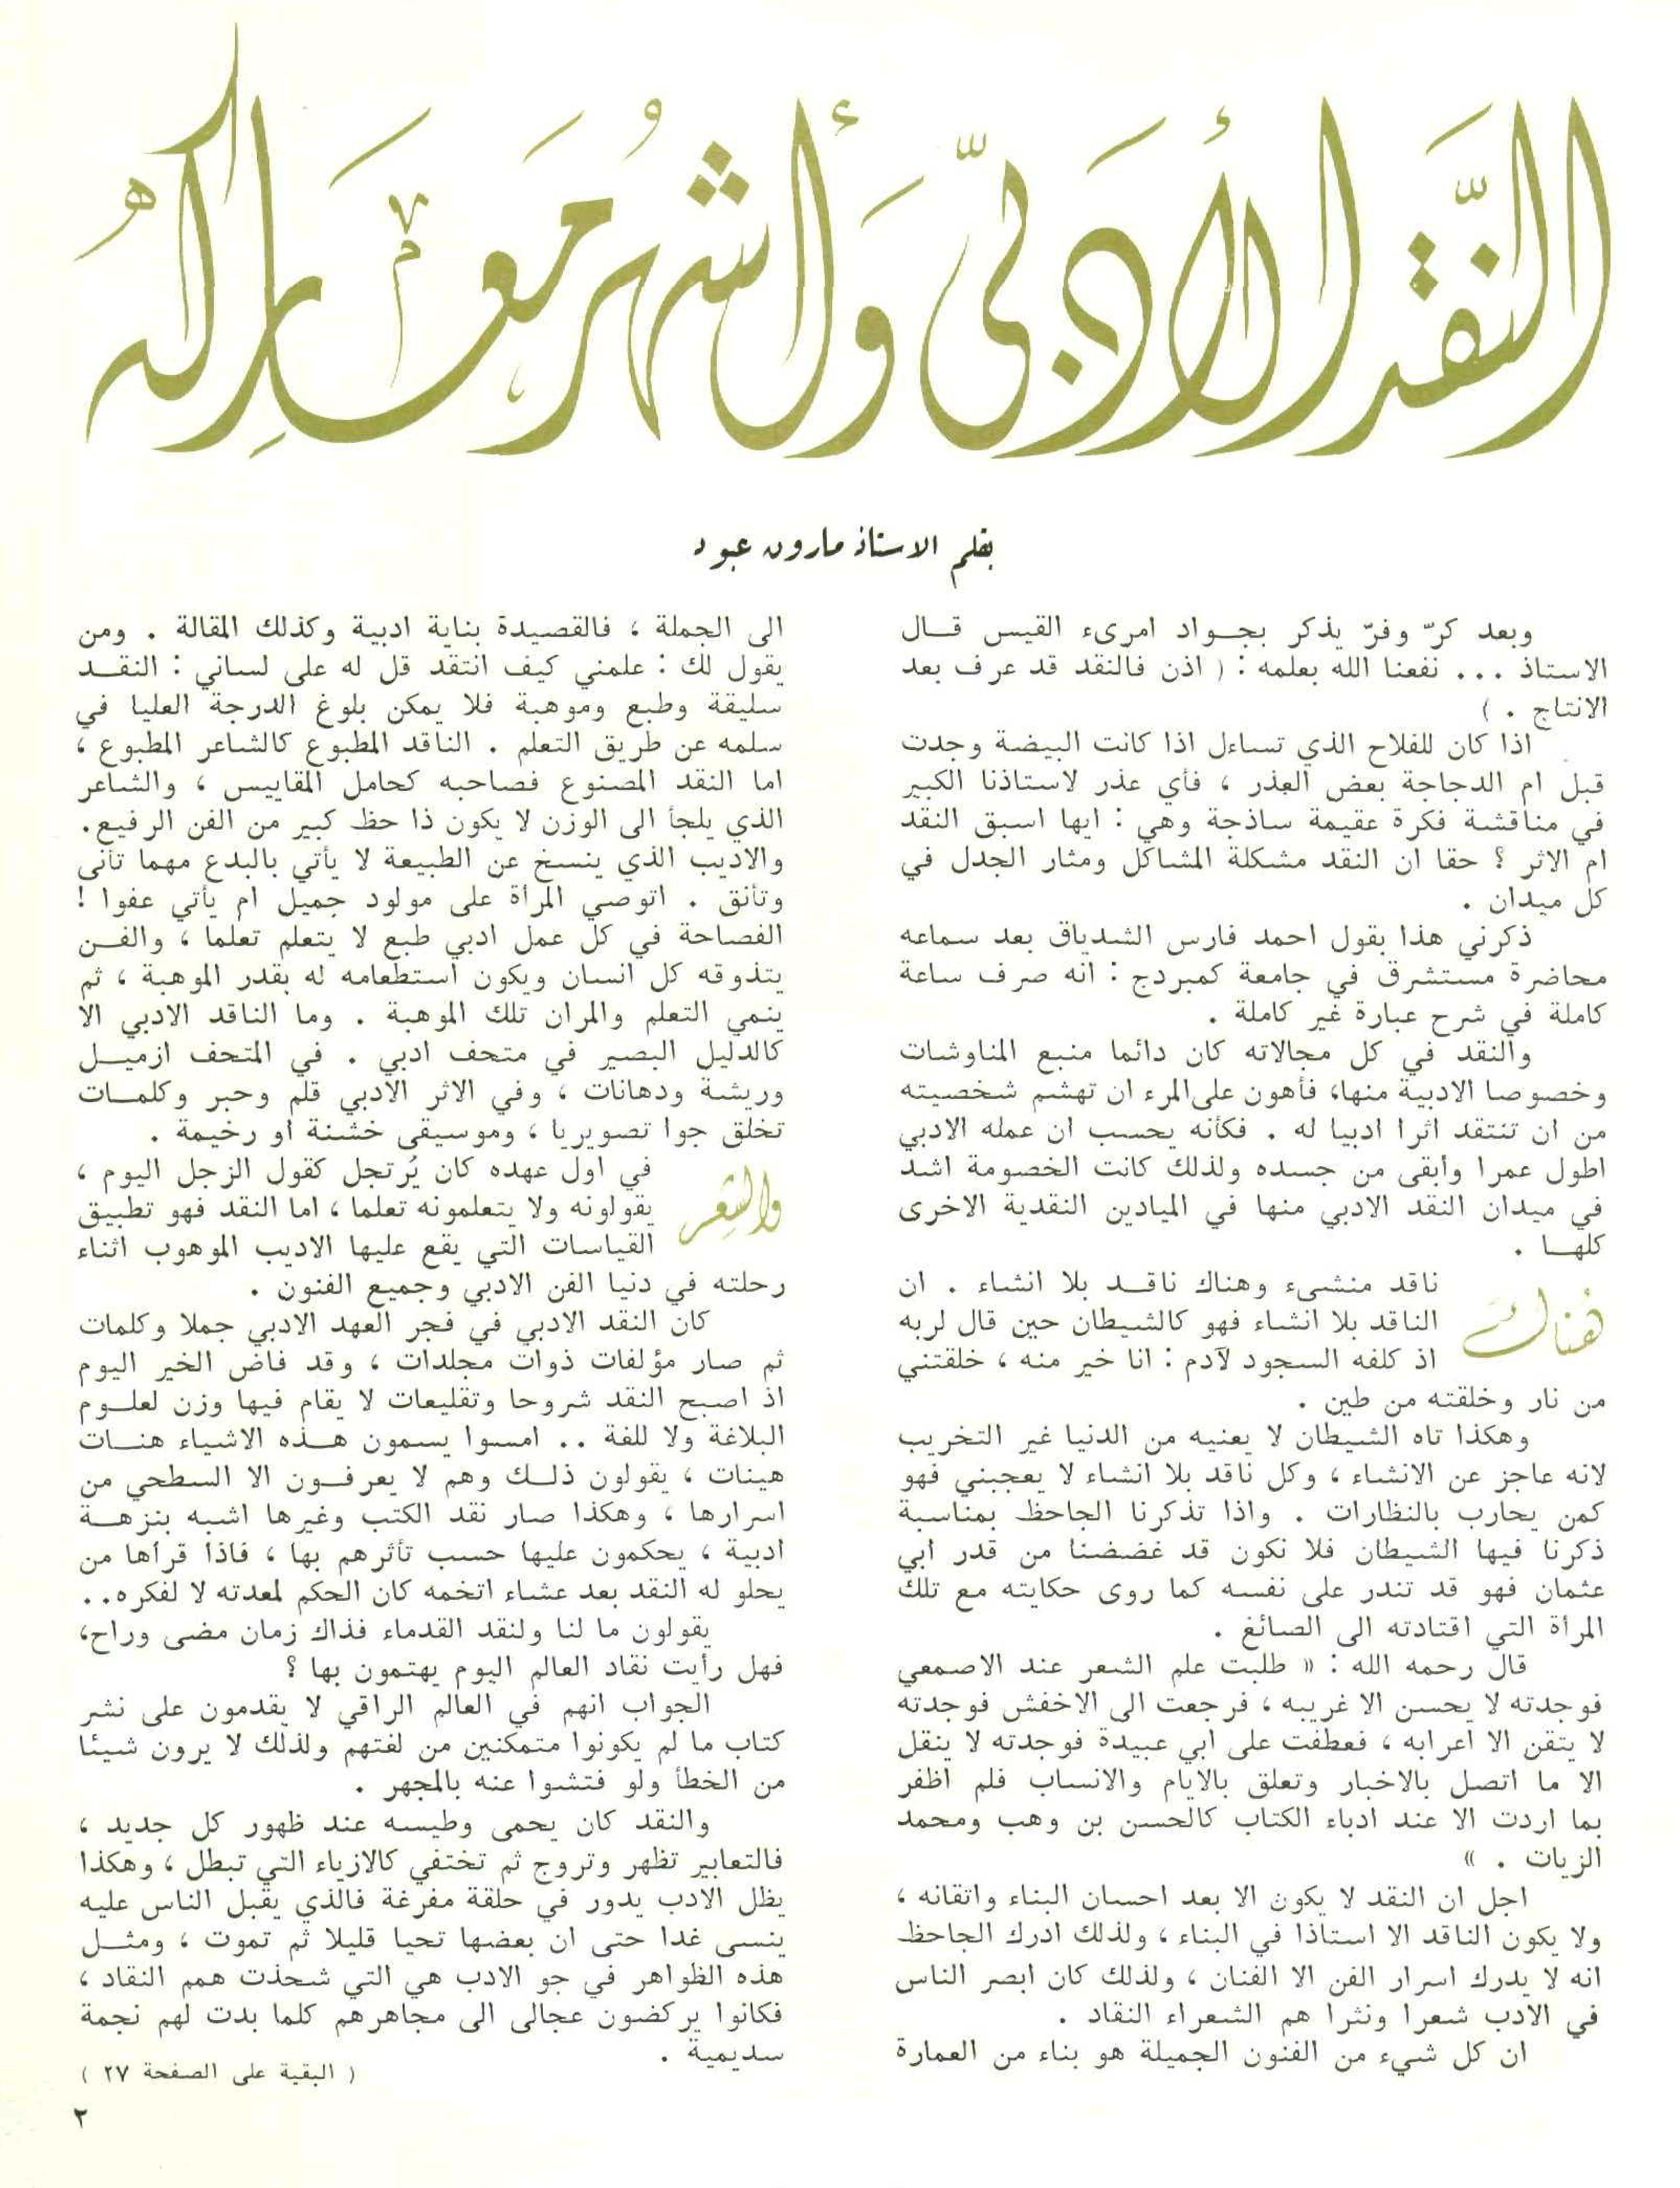 النَّقد الأدبيّ وَأشهُر مَعَاركِهُ
بقلم الاستاذ مارون عبود
وبعد كرّ وفرّ يذكر بجــواد امرىء القيس قــال
الاستاذ ... نفعنا الله بعلمه : ( اذن فالنقد قد عرف بعد
الانتاج . )
اذا كان للفلاح الذي تساءل اذا كانت البيضة وجدت
قبل ام الدجاجة بعض العذر ، فأي عذر لاستاذنا الكبير
في مناقشة فكرة عقيمة ساذجة وهي : ايها اسبق النقد
ام الاثر ؟ حقا ان النقد مشكلة المشاكل ومثار الجدل في
كل ميدان .
ذكرني هذا بقول احمد فارس الشدياق بعد سماعه
محاضرة مستشرق في جامعة كمبردج : انه صرف ساعة
كاملة في شرح عبارة غير كاملة .
والنقد في كل مجالاته كان دائما منبع المناوشات
وخصوصا الادبية منها، فأهون على المرء ان تهشم شخصيته
من ان تنتقد اثرا ادبيا له . فكأنه يحسب ان عمله الادبي
اطول عمرا وابقى من جسده ولذلك كانت الخصومة اشد
في ميدان النقد الادبي منها في الميادين النقدية الاخرى
كلهــا .
هُنَاكَ ناقد منشىء وهناك ناقــد بلا انشاء . ان
الناقد بلا انشاء فهو كالشيطان حين قال لربه
اذ كلفه السجود لآدم : انا خير منه ، خلقتني
من نار وخلقته من طين .
وهكذا تاه الشيطان لا يعنيه من الدنيا غير التخريب
لانه عاجز عن الانشاء ، وكل ناقد بلا انشاء لا يعجبني فهو
كمن يحارب بالنظارات . واذا تذكرنا الجاحظ بمناسبة
ذكرنا فيها الشيطان فلا نكون قد غضضنا من قدر ابي
عثمان فهو قد تندر على نفسه كما روى حكايته مع تلك
المرأة التي اقتادته الى الصائغ .
قال رحمه الله : « طلبت علم الشعر عند الاصمعي
فوجدته لا يحسن الا غريبه ، فرجعت الى الاخفش فوجدته
لا يتقن الا اعرابه ، فعطفت على ابي عبيدة فوجدته لا ينقل
الا ما اتصل بالاخبار وتعلق بالايام والانساب فلم اظفر
بما اردت الا عند ادباء الكتاب كالحسن بن وهب ومحمد
الزيات . »
اجل ان النقد لا يكون الا بعد احسان البناء واتقانه ،
ولا يكون الناقد الا استاذا في البناء ، ولذلك ادرك الجاحظ
انه لا يدرك اسرار الفن الا الفنان ، ولذلك كان ابصر الناس
في الادب شعرا ونثرا هم الشعراء النقاد .
ان كل شيء من الفنون الجميلة هو بناء من العمارة
الى الجملة ، فالقصيدة بناية ادبية وكذلك المقالة . ومن
يقول لك : علمني كيف انتقد قل له على لساني : النقــد
سليقة وطبع وموهبة فلا يمكن بلوغ الدرجة العليا في
سلمه عن طريق التعلم . الناقد المطبوع كالشاعر المطبوع ،
اما النقد المصنوع فصاحبه كحامل المقاييس ، والشاعر
الذي يلجأ الى الوزن لا يكون ذا حظ كبير من الفن الرفيع.
والاديب الذي ينسخ عن الطبيعة لا يأتي بالبدع مهما تأنى
وتأنق . اتوصي المرأة على مولود جميل ام يأتي عفوا !
الفصاحة في كل عمل ادبي طبع لا يتعلم تعلما ، والفــن
يتذوقه كل انسان ويكون استطعامه له بقدر الموهبة ، ثم
ينمي التعلم والمران تلك الموهبة . وما الناقد الادبي الا
كالدليل البصير في متحف ادبي . في المتحف ازميــل
وريشة ودهانات ، وفي الاثر الادبي قلم وحبر وكلمــات
تخلق جوا تصويريا ، وموسيقى خشنة او رخيمة .
والشِعر في اول عهده كان يُرتجل كقول الزجل اليوم ،
يقولونه ولا يتعلمونه تعلما ، اما النقد فهو تطبيق
القياسات التي يقع عليها الاديب الموهوب اثناء
رحلته في دنيا الفن الادبي وجميع الفنون .
كان النقد الادبي في فجر العهد الادبي جملا وكلمات
ثم صار مؤلفات ذوات مجلدات ، وقد فاض الخير اليوم
اذ اصبح النقد شروحا وتقليعات لا يقام فيها وزن لعلــوم
البلاغة ولا للغة .. امسوا يسمون هــذه الاشياء هنــات
هينات ، يقولون ذلــك وهم لا يعرفــون الا السطحي من
اسرارها ، وهكذا صار نقد الكتب وغيرها اشبه بنزهــة
ادبية ، يحكمون عليها حسب تأثرهم بها ، فاذا قرأها من
يحلو له النقد بعد عشاء اتخمه كان الحكم لمعدته لا لفكره..
يقولون ما لنا ولنقد القدماء فذاك زمان مضى وراح،
فهل رأيت نقاد العالم اليوم يهتمون بها ؟
الجواب انهم في العالم الراقي لا يقدمون على نشر
كتاب ما لم يكونوا متمكنين من لغتهم ولذلك لا يرون شيئا
من الخطأ ولو فتشوا عنه بالمجهر .
والنقد كان يحمى وطيسه عند ظهور كل جديد ،
فالتعابير تظهر وتروج ثم تختفي كالازياء التي تبطل ، وهكذا
يظل الادب يدور في حلقة مفرغة فالذي يقبل الناس عليه
ينسى غدا حتى ان بعضها تحيا قليلا ثم تموت ، ومثــل
هذه الظواهر في جو الادب هي التي شحذت همم النقاد ،
فكانوا يركضون عجالى الى مجاهرهم كلما بدت لهم نجمة
سديمية .
( البقية على الصفحة ٢٧ )
٢